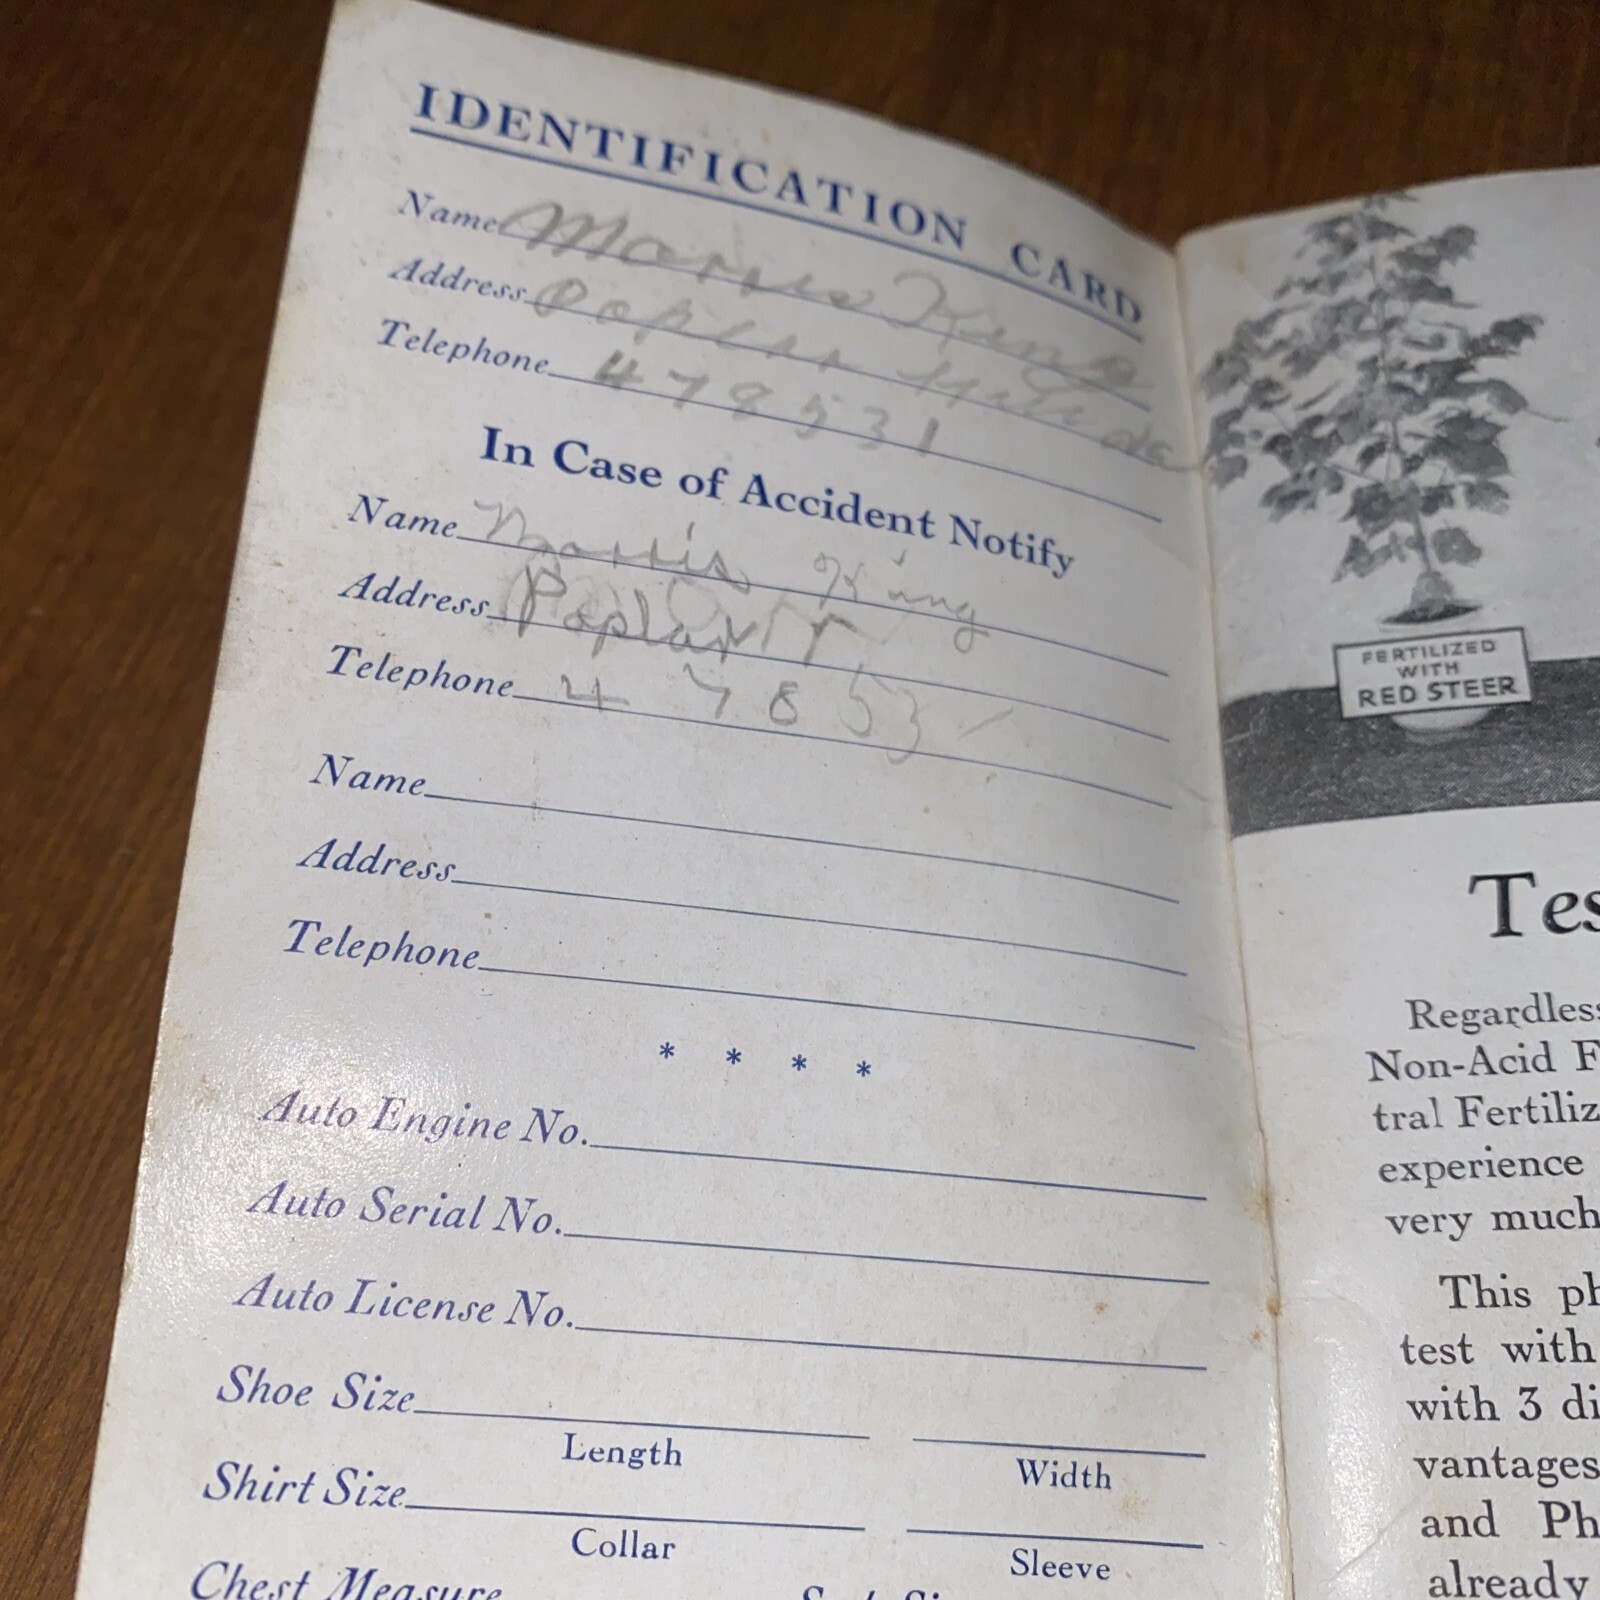 IDENTIFICATION CARD
Name Morris King
Address Poplar
Telephone 478531
In Case of Accident Notify
Name Morris King
Address Poplar
Telephone 47853
Name
Address
Telephone
* * * *
Auto Engine No.
Auto Serial No.
Auto License No.
Shoe Size
Length Width
Shirt Size
Collar Sleeve
Chest Measure
FERTILIZED
WITH
RED STEER
Tes
Regardless
Non-Acid F
tral Fertiliz
experience
very much
This ph
test with
with 3 di
vantages
and Ph
already